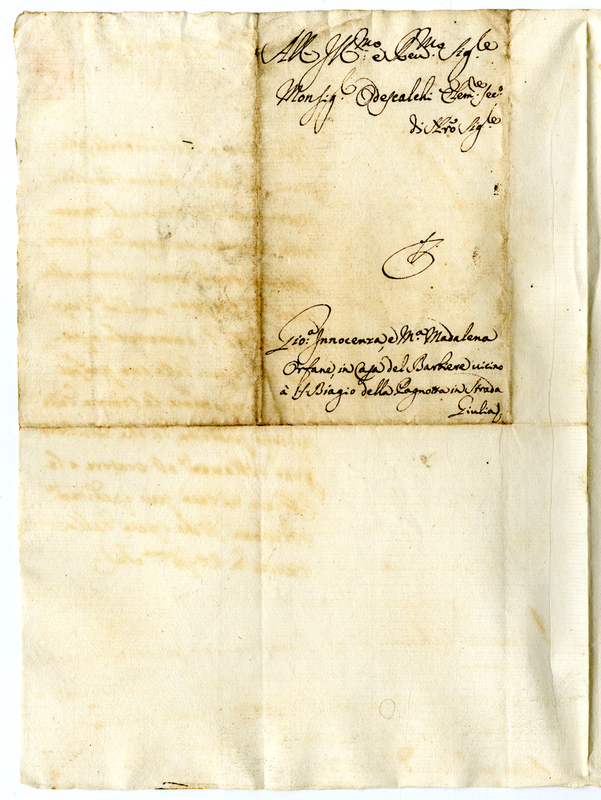 All Ill.mo e Rev.mo Sig.re
Monsig.r Odescalchi Elem.re seg.o
di N'ro Sig.re
Gio.a Innocenza, e M.a Madalena
Orfane, in Casa del Barbere vicino
à S. Biagio della Pagnotta in Strada
Giulia